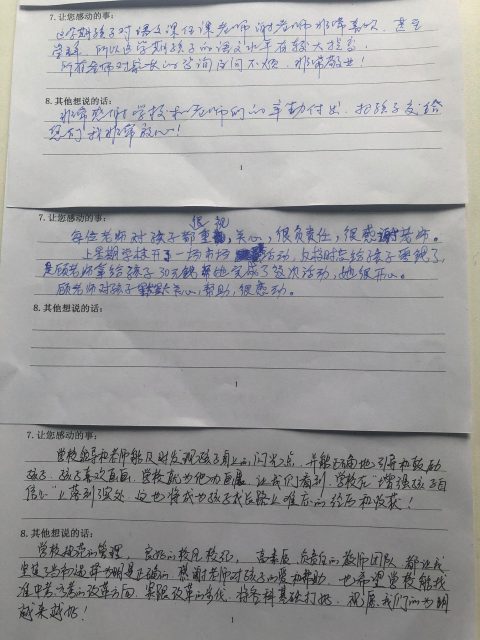 7. 让您感动的事:
这学期孩子对语文课任课老师谢老师非常喜欢，甚至
崇拜，所以这学期孩子的语文水平有较大提高
所有老师对家长的咨询及问不烦，非常敬业！
8. 其他想说的话:
非常感谢学校和老师们的辛勤付出，把孩子交给
您们我非常放心！
1
7. 让您感动的事:
很 视
每位老师对孩子都重，关心，很负责任，很感谢老师。
上星期学校开了一场市场活动，因为忘给孩子要钱了，
是顾老师拿给孩子30元钱帮她完成了这次活动，她很开心。
顾老师对孩子关心，帮助，很感动。
8. 其他想说的话:
1
7. 让您感动的事:
学校领导和老师能及时发现孩子身上的闪光点，并能正确地引导和鼓励
孩子。孩子喜欢画画，学校就为他办画展，让我们看到，学校在"增强孩子自
信心"上落到深处，这也将成为孩子成长路上难忘的经历和收获！
8. 其他想说的话:
学校规范的管理，良好的校风校纪，高素质负责任的教师团队都让我
坚定了当初选择为明是正确的。感谢老师对孩子的爱和帮助，也希望学校能找
准中考、高考的改革方向，紧跟改革的步伐，将各科基础打好。祝愿我们的为明
越来越好！
1